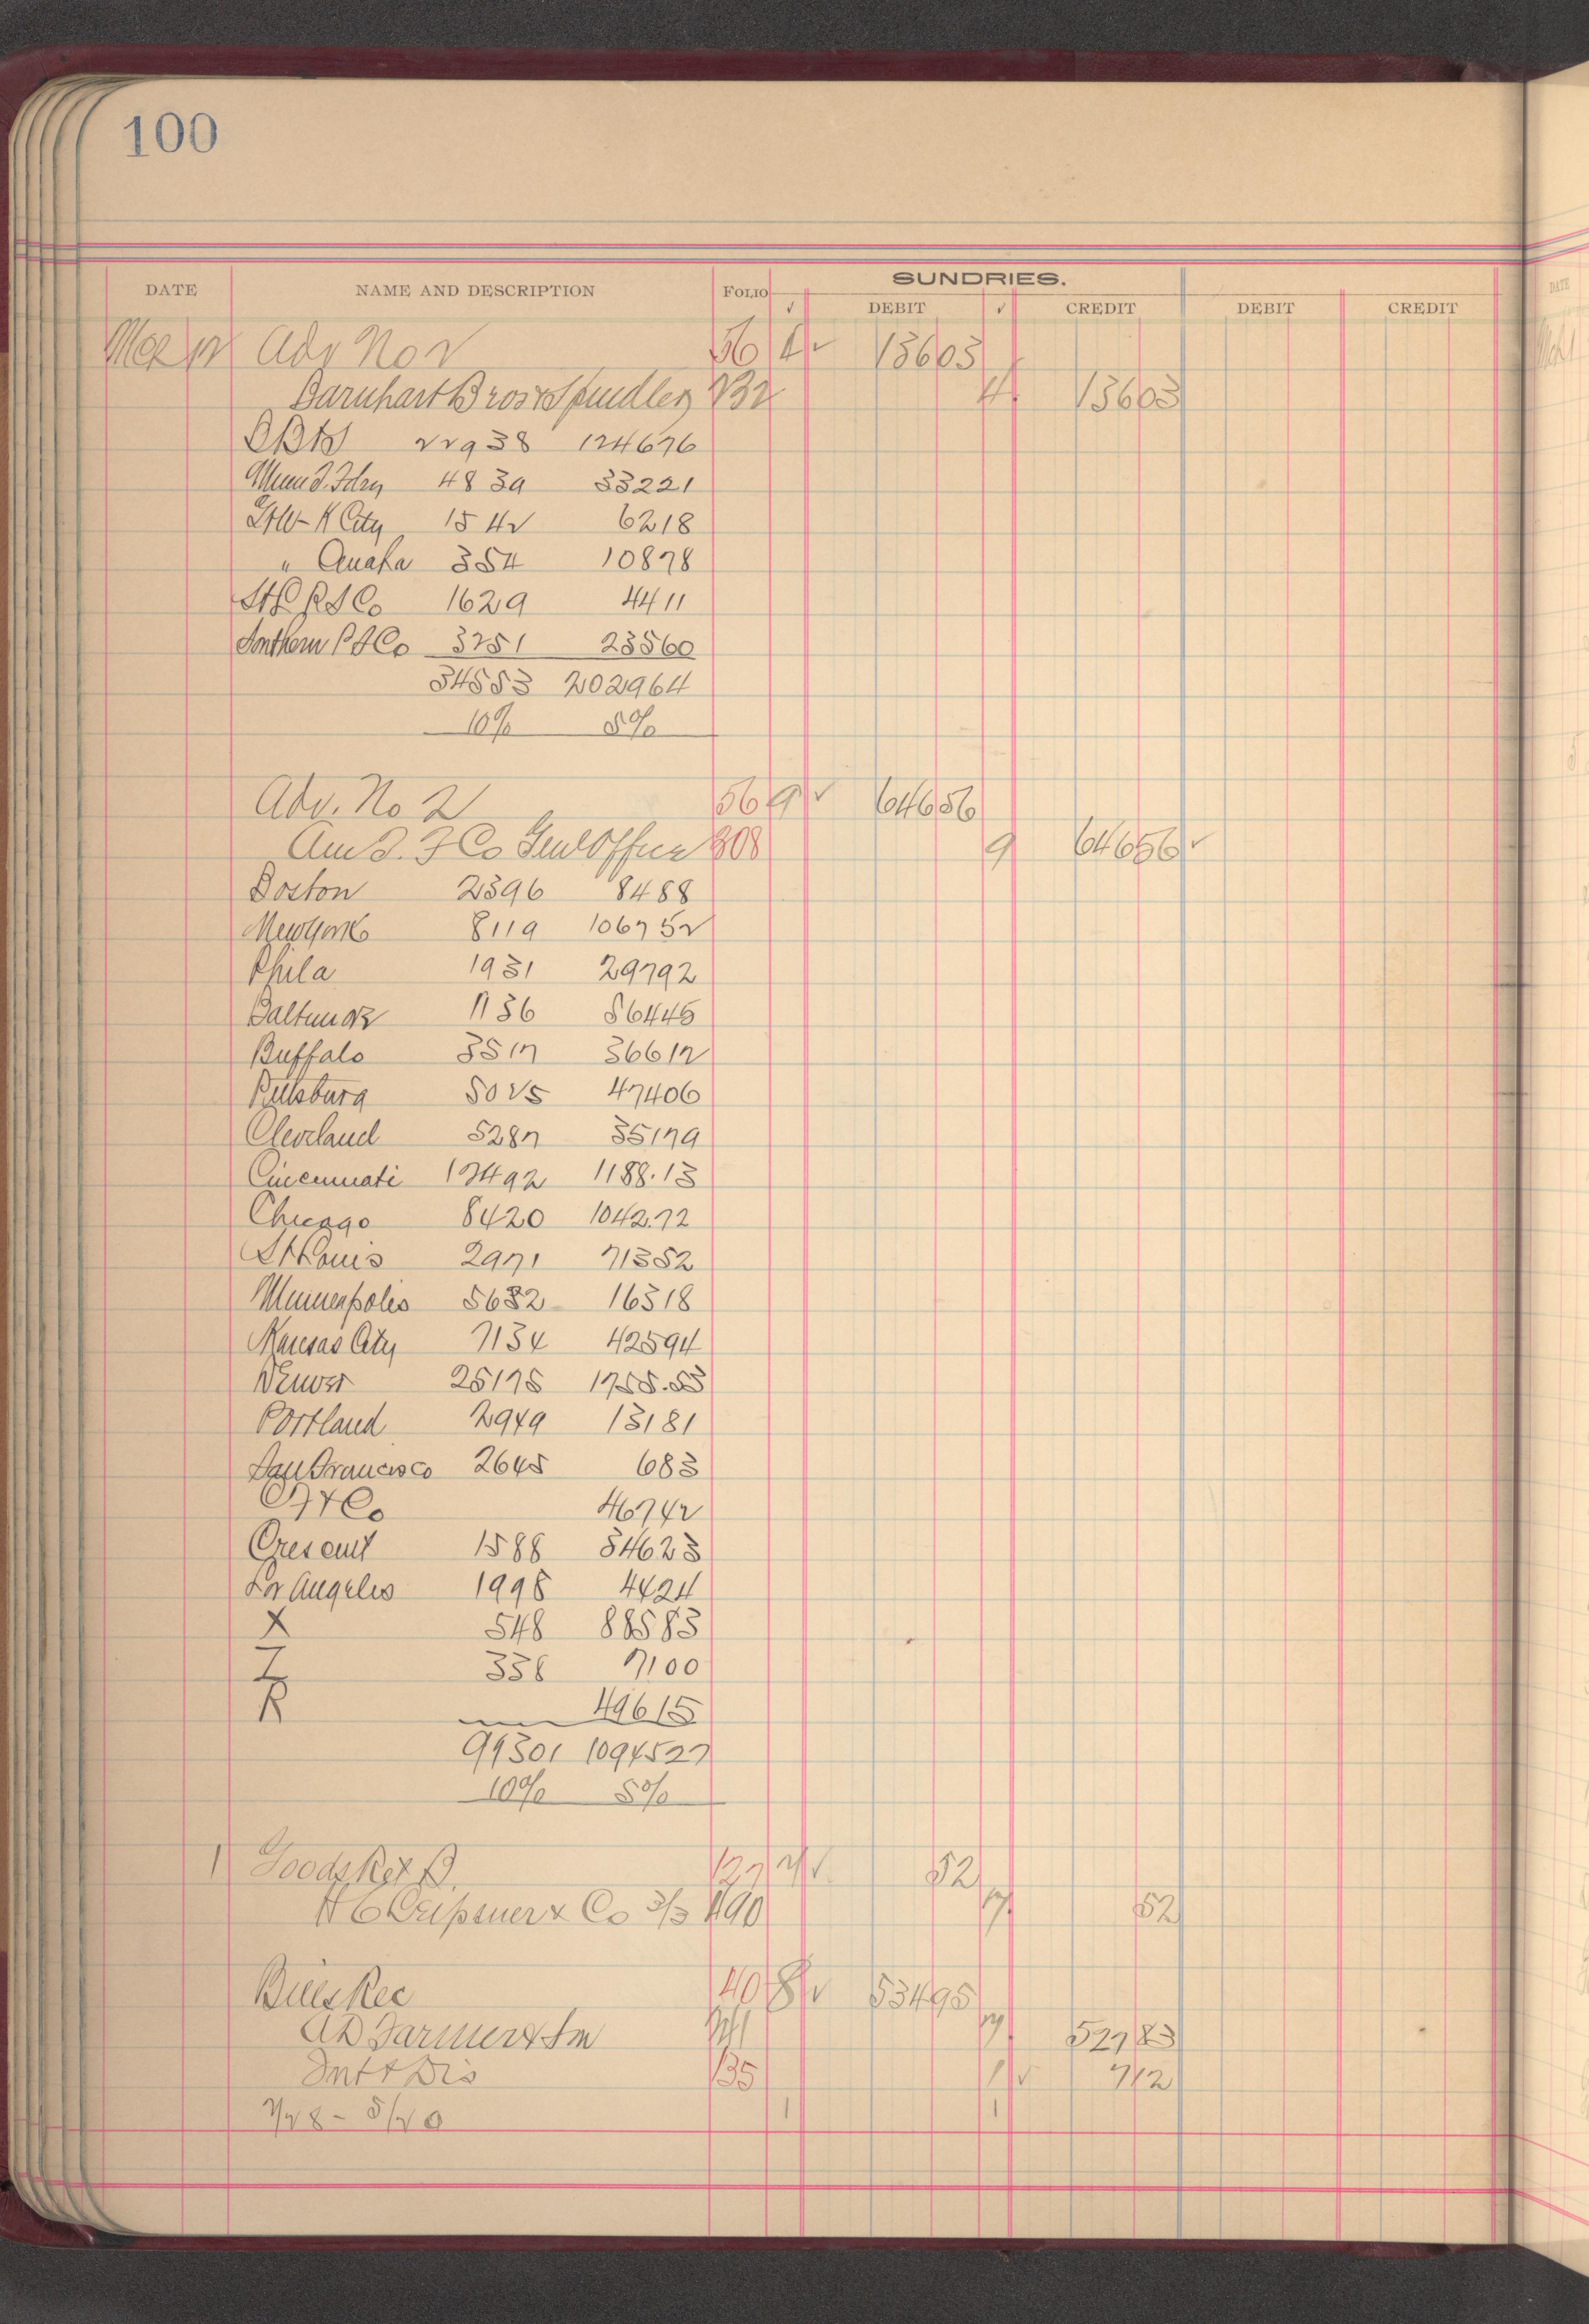 100
SUNDRIES.
DATE NAME AND DESCRIPTION FOLIO ✓ DEBIT ✓ CREDIT DEBIT CREDIT
Mch 12 Adv No 2 56 4 ✓ 13603
Barnhart Bros & Spindler 132 4 13603
BB&S 22938 124676
Minn T. Fdry 4839 33221
GtW- K City 1542 6218
" Omaha 354 10878
StL P S Co 1629 4411
Southern P S Co 3251 23560
34553 202964
10% 5%
Adv. No 2 56 9 ✓ 64656
Am T. F Co Genl Office 308 9 64656 ✓
Boston 2396 8488
New York 8119 106752
Phila 1931 29792
Baltimore 1736 56445
Buffalo 3517 36612
Pittsburg 5025 47406
Cleveland 5287 35179
Cincinnati 17492 1188.13
Chicago 8420 1042.72
St Louis 2971 71352
Minneapolis 5632 16318
Kansas City 7134 42594
Denver 25175 1755.53
Portland 2949 13181
San Francisco 2645 683
& Co 46742
Crescent 1588 34623
Los Angeles 1998 4424
X 548 88583
Z 338 7100
R 49615
1094527
10% 5%
1 Goods Ret D. 127 ✓ 52
& Co 3/3 490 7 52
Bills Rec 40 8 ✓ 53495
AD Farmer & Son 7 52783
Int & Dis 135 1 ✓ 712